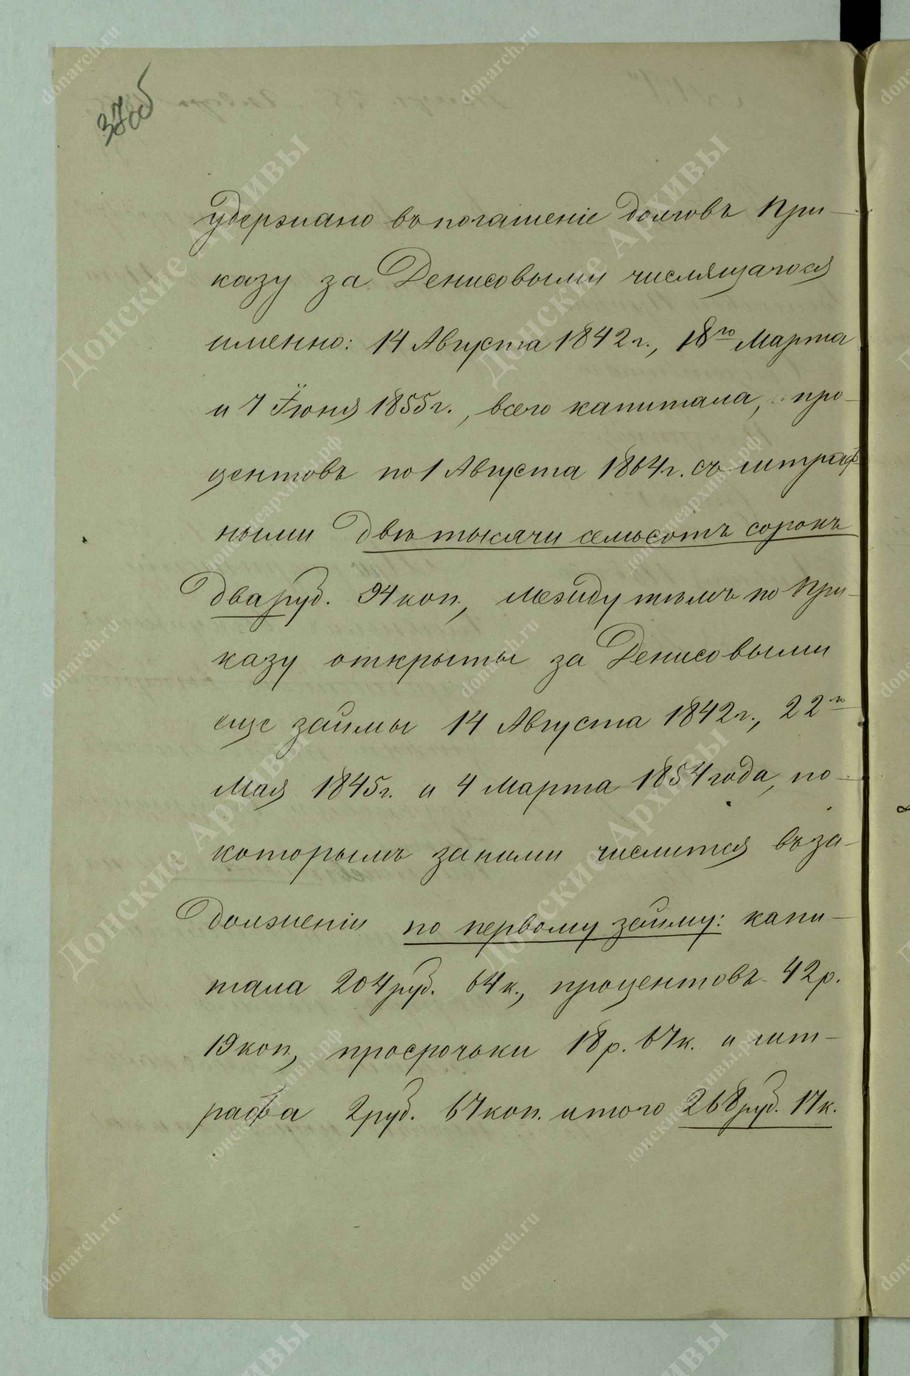 37об
удержано въ погашеніе долговъ При-
казу за Денисовыми числящагося
именно: 14 Августа 1842 г., 18го Марта
и 7 Іюня 1855 г., всего капитала, про-
центовъ по 1 Августа 1864 г. съ штраф
ными двѣ тысячи семьсотъ сорокъ
два руб. 94 коп., между тѣмъ по При-
казу открыты за Денисовыми
еще займы 14 Августа 1842 г., 22го
Мая 1845 г. и 4 Марта 1854 года, по
которымъ за ними числится въ за-
долженіи по первому займу: капи-
тала 204 руб. 64 к., процентовъ 42 р.
19 коп., просрочки 18 р. 67 к. и шт-
рафа 2 руб. 67 коп. итого 268 руб. 17 к.
Донские Архивы
donarch.ru
донскиеархивы.рф